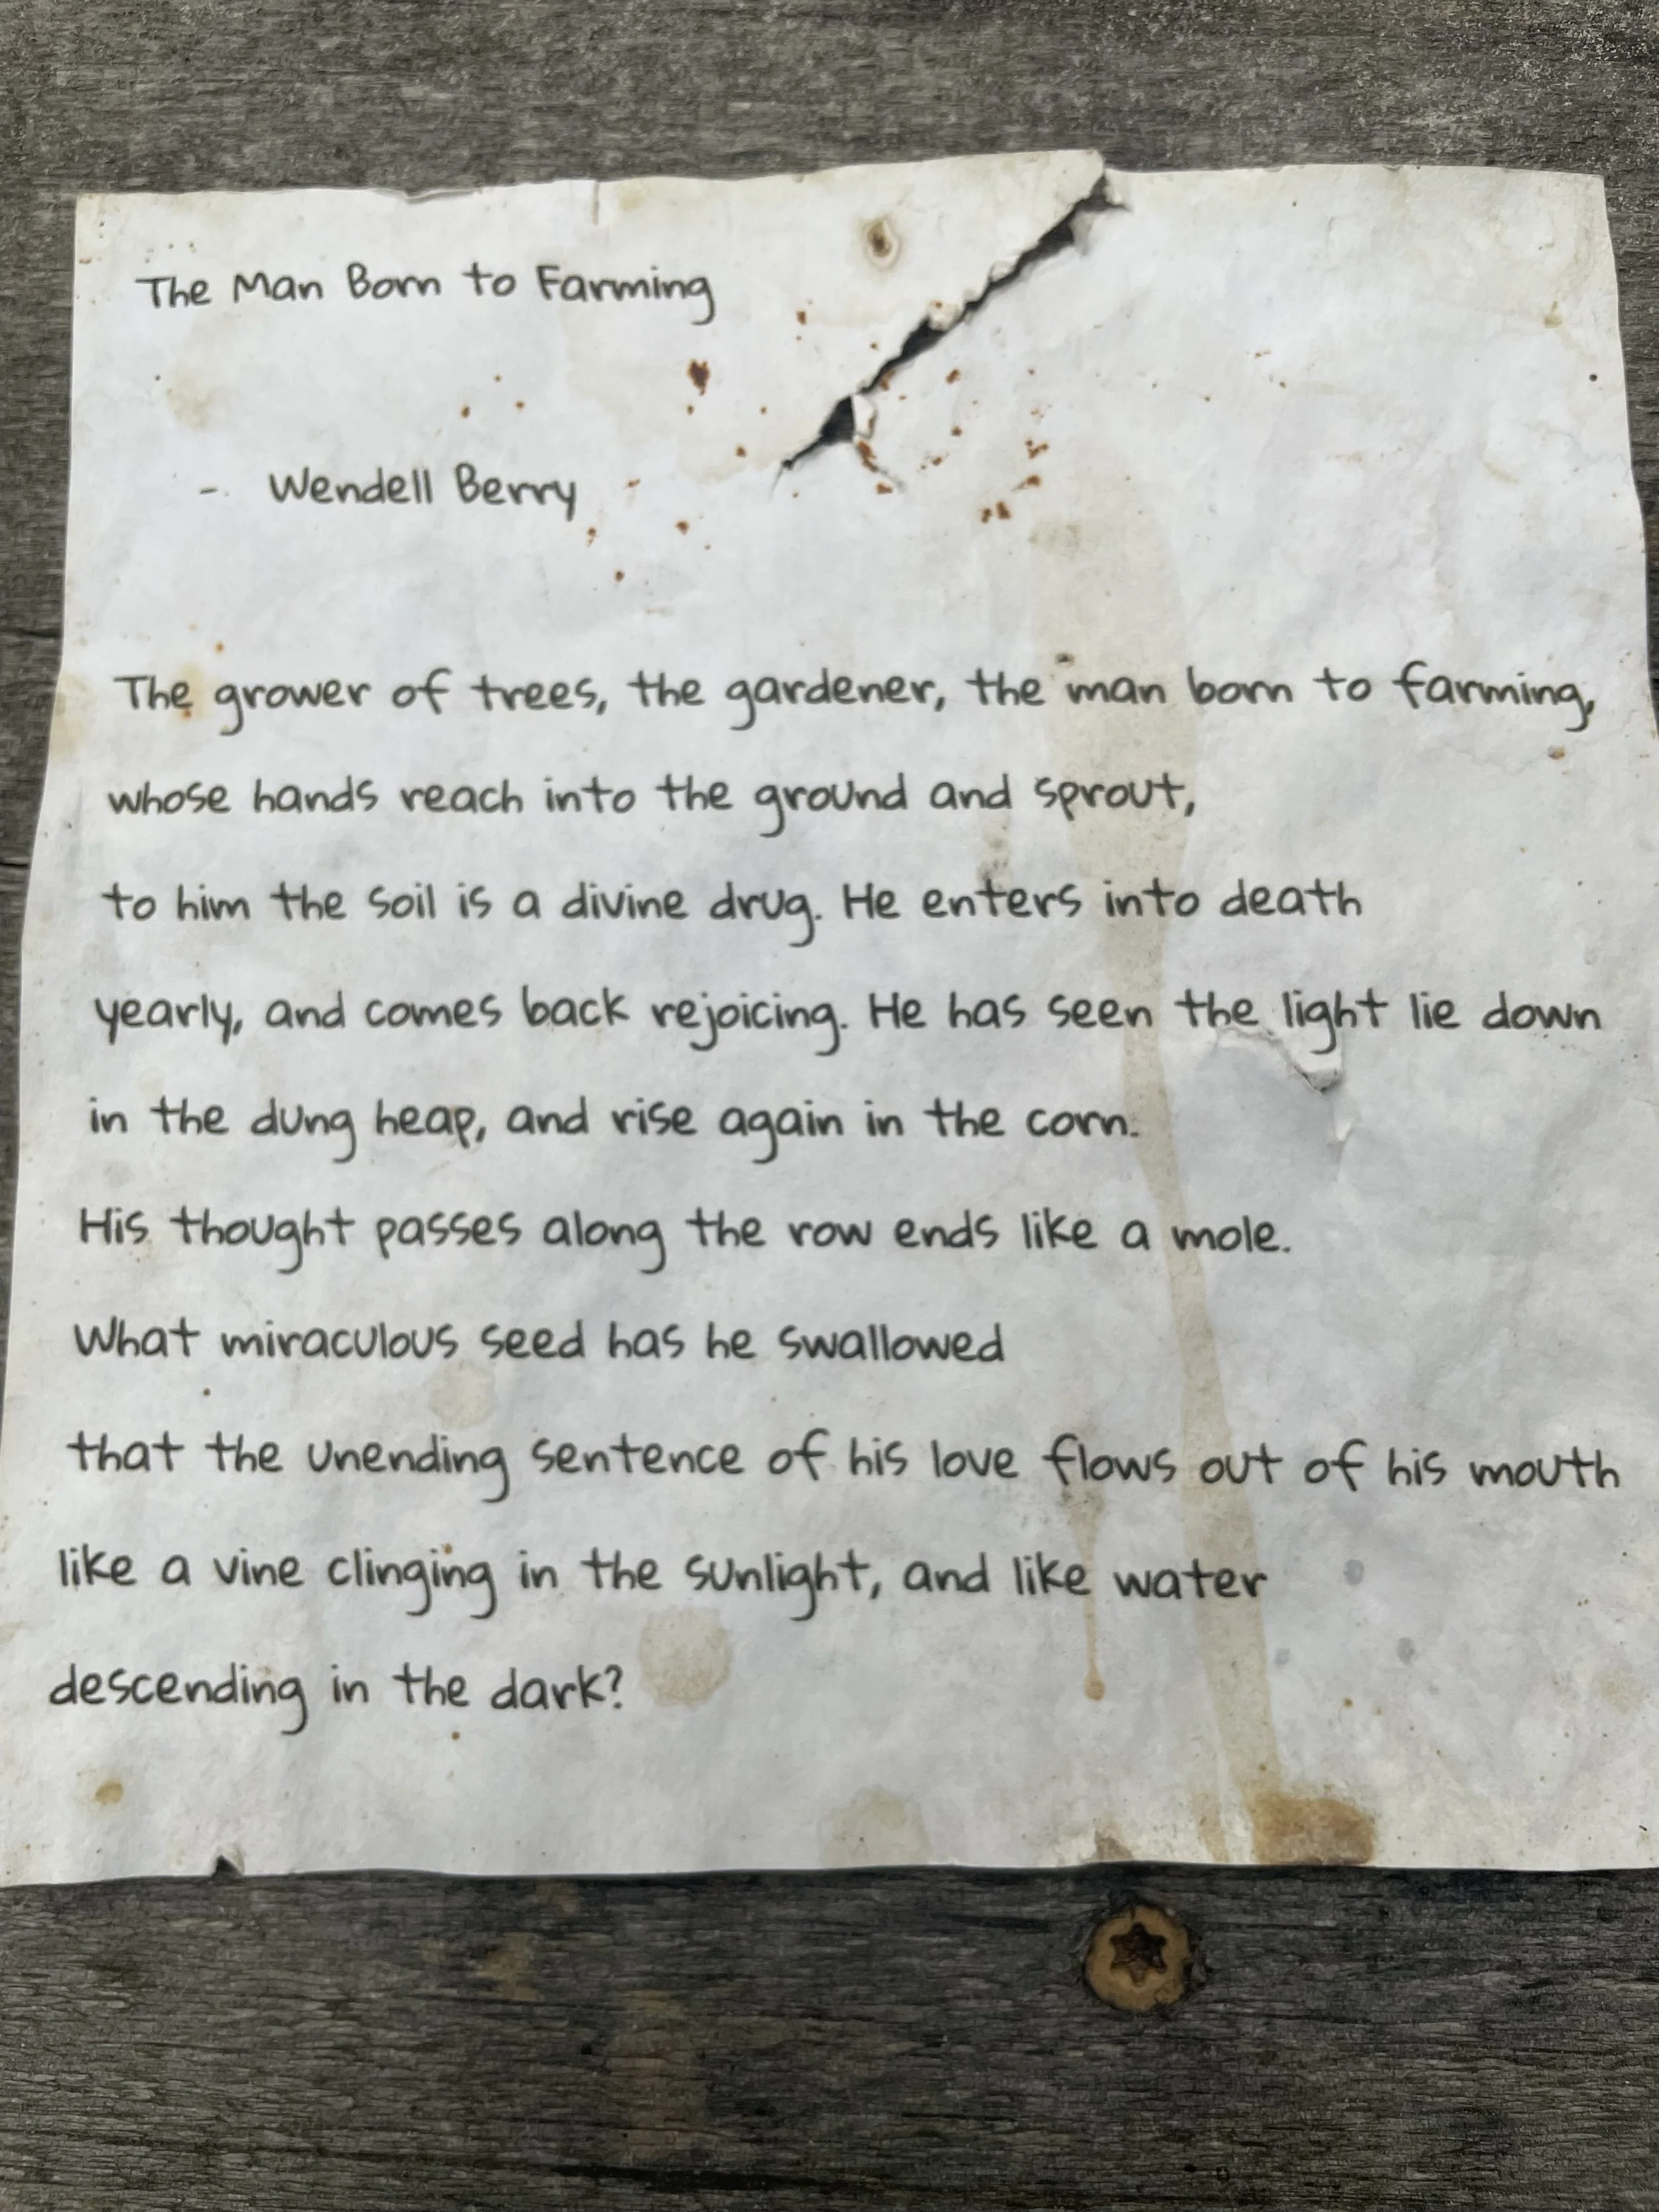 The Man Born to Farming
- Wendell Berry
The grower of trees, the gardener, the man born to farming,
whose hands reach into the ground and sprout,
to him the soil is a divine drug. He enters into death
yearly, and comes back rejoicing. He has seen the light lie down
in the dung heap, and rise again in the corn.
His thought passes along the row ends like a mole.
What miraculous seed has he swallowed
that the unending sentence of his love flows out of his mouth
like a vine clinging in the sunlight, and like water
descending in the dark?